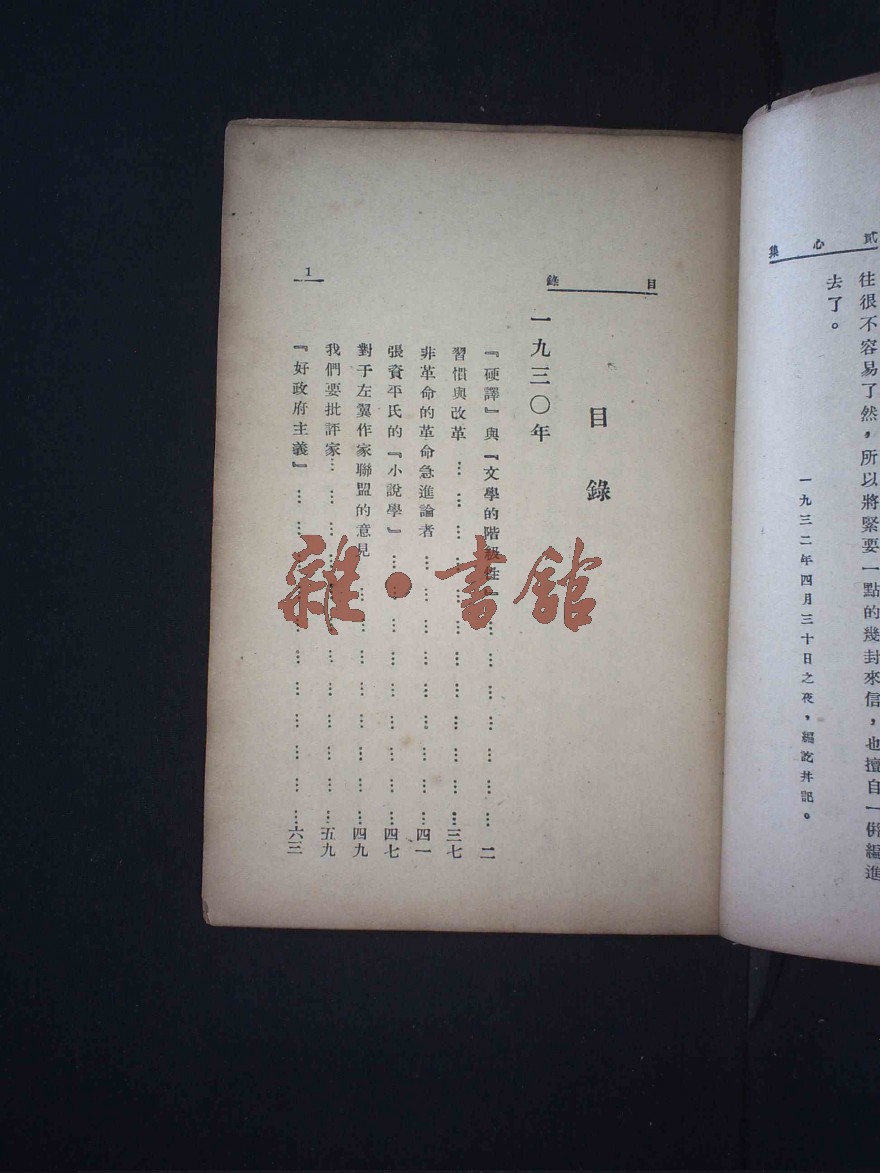 貳心集
往很不容易了然，所以將緊要一點的幾封來信，也擅自一倂編進
去了。
一九三二年四月三十日之夜，編訖幷記。
目錄
目錄
一九三〇年
『硬譯』與『文學的階級性』…………………二
習慣與改革…………………三七
非革命的革命急進論者…………………四一
張資平氏的『小說學』…………………四七
對于左翼作家聯盟的意見…………………四九
我們要批評家…………………五九
『好政府主義』…………………六三
1
雜·書館